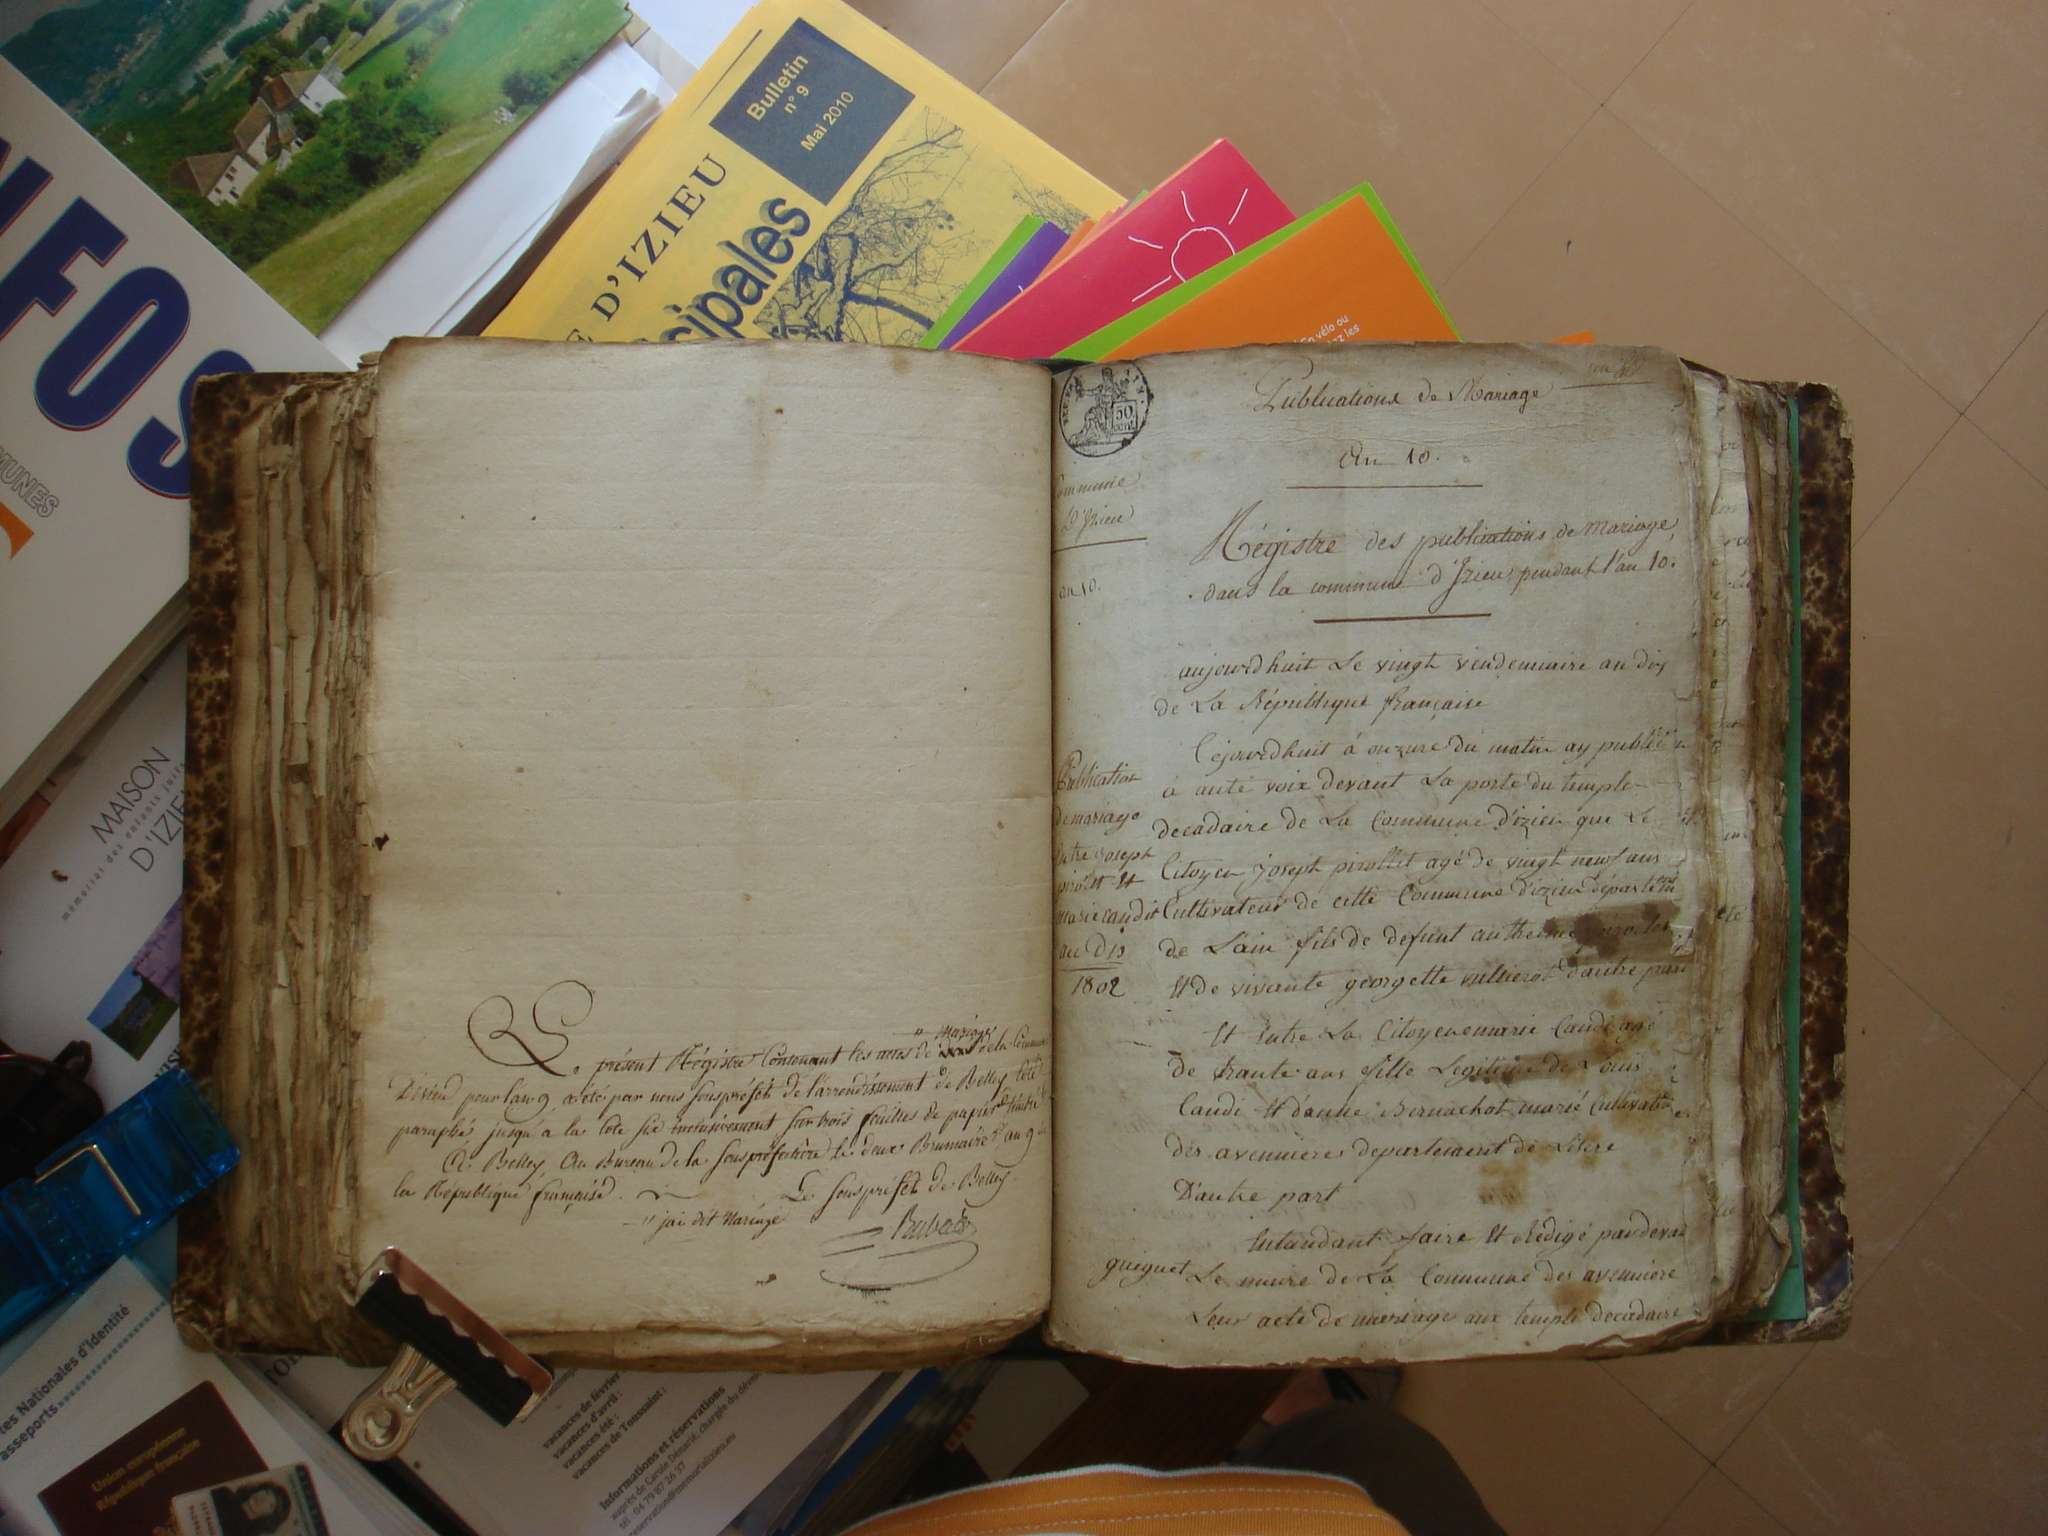 Bulletin
n° 9
Mai 2010
D'IZIEU
cipales
NFOS
MUNES
MAISON
D'IZIEU
mémorial des enfants juifs
en vélo ou
ez les
Le présent Régistre Contenant les actes de " Mariages de la Commune
D'izieu pour l'an 9 a été par nous sous préfet de l'arrondissement de Belley Coté
paraphé, jusqu'à la cote six inclusivement sur trois feuilles de papier timbré
A Belley, Au Bureau de la sous préfecture le deux Brumaire an 9 de
la République française.
Le sous préfet de Belley
" jai dit Mariage
50
cent
Publications de Mariage
An 10.
Commune
D'Izieu
an 10.
Régistre des publications de mariage,
dans la commune d'Izieu, pendant l'an 10.
aujourdhuit Le vingt vendemiaire an dix
de La République française
Cejourdhuit à onzure du matin ay publié
à auté voix devant La porte du temple
decadaire de La Commune d'izieu que Le
Citoyen joseph pirollet agé de vingt neuf ans
Cultivateur de cette Commune d'izieu départem
de Lain fils de defunt antheime
Et de vivante georgette d'autre part
Publication
de mariage
entre joseph
pirollet Et
marie candit
an Dix
1802
Et Entre La Citoyene marie Candi agé
de trante ans fille Legitime de Louis
Candi Et d'anne Bernachot marié Cultivat
des avenniere departement de Lisere
D'autre part
Entandant faire Et Redigé pardeva
guiguet Le maire de La Commune des avenniere
Leur acte de mariage aux temple decadaire
tes Nationales d'identité
asseports
Union européenne
République française
vacances de février
vacances d'avril :
vacances été :
vacances de Toussaint :
Informations et réservations
auprès de Carole Dénarié, chargée du
tél : 04 79 87 26 37
reservation@memorializieu.eu